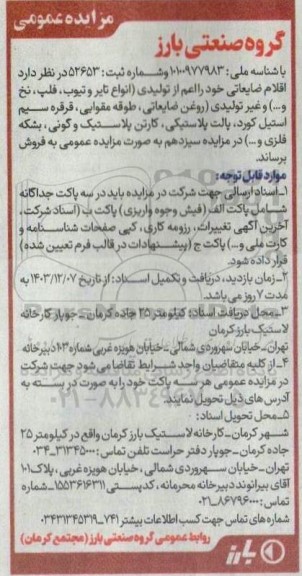 مزایده عمومی
گروه صنعتی بارز
با شناسه ملی: ۱۰۱۰۰۹۷۷۹۸۳ و شماره ثبت: ۵۲۶۵۳ در نظر دارد
اقلام ضایعاتی خود را اعم از تولیدی (انواع تایر و تیوب، فلپ، نخ
و...) و غیر تولیدی (روغن ضایعاتی، طوقه مقوایی، قرقره سیم
استیل کورد، پالت پلاستیکی، کارتن پلاستیک و گونی، بشکه
فلزی و...) در مزایده سیزدهم به صورت مزایده عمومی به فروش
برساند.
موارد قابل توجه:
۱_اسناد ارسالی جهت شرکت در مزایده باید در سه پاکت جداگانه
شامل پاکت الف (فیش وجوه واریزی) پاکت ب (اسناد شرکت،
آخرین آگهی تغییرات، رزومه کاری، کپی صفحات شناسنامه و
کارت ملی و...) پاکت ج (پیشنهادات در قالب فرم تعیین شده)
قرار داده شود.
۲_زمان بازدید، دریافت و تکمیل اسناد: از تاریخ ۱۴۰۳/۱۲/۰۷ به
مدت ۷ روز می باشد.
۳_محل دریافت اسناد: کیلومتر ۲۵ جاده کرمان_جوپار کارخانه
لاستیک بارز کرمان
تهران_خیابان سهروردی شمالی_خیابان هویزه غربی شماره ۱۰۳ دبیرخانه
۴_از کلیه متقاضیان واجد شرایط تقاضا می شود جهت شرکت
در مزایده عمومی هر سه پاکت خود را به صورت در بسته به
آدرس های ذیل تحویل نمایند.
۵_محل تحویل اسناد:
شهر کرمان_کارخانه لاستیک بارز کرمان واقع در کیلومتر ۲۵
جاده کرمان_جوپار دفتر حراست تلفن تماس: ۳۱۳۴۵۰۰۰_۰۳۴
تهران_خیابان سهروردی شمالی، خیابان هویزه غربی، پلاک ۱۰۱
آقای بیرانوند دبیرخانه محرمانه، کدپستی ۱۵۵۳۶۱۶۳۱۱_شماره
تماس: ۸۶۷۹۶۰۰۰_۰۲۱
شماره های تماس جهت کسب اطلاعات بیشتر ۷۴۱_۰۳۴۳۱۳۴۵۳۱۹
روابط عمومی گروه صنعتی بارز (مجتمع کرمان)
بارز